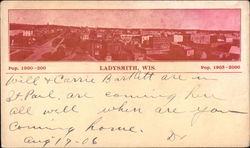 Pop. 1900-200 LADYSMITH, WIS. Pop. 1905-2000
Will & Carrie Bartlett are in
St. Paul, are coming here
all well when are you
coming home.
Aug 19-06 Dr